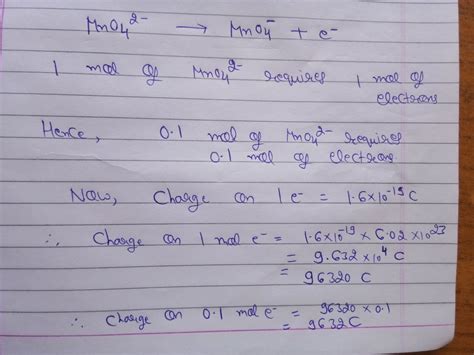 MnO4^2- → MnO4^- + e-
1 mol of MnO4^2- requires 1 mol of
electrons
Hence, 0.1 mol of MnO4^2- requires
0.1 mol of electrons
Now, Charge on 1 e- = 1.6×10^-19 C
∴ Charge on 1 mol e- = 1.6×10^-19 × 6.02 × 10^23
= 9.632 × 10^4 C
= 96320 C
∴ Charge on 0.1 mol e- = 96320 × 0.1
= 9632 C